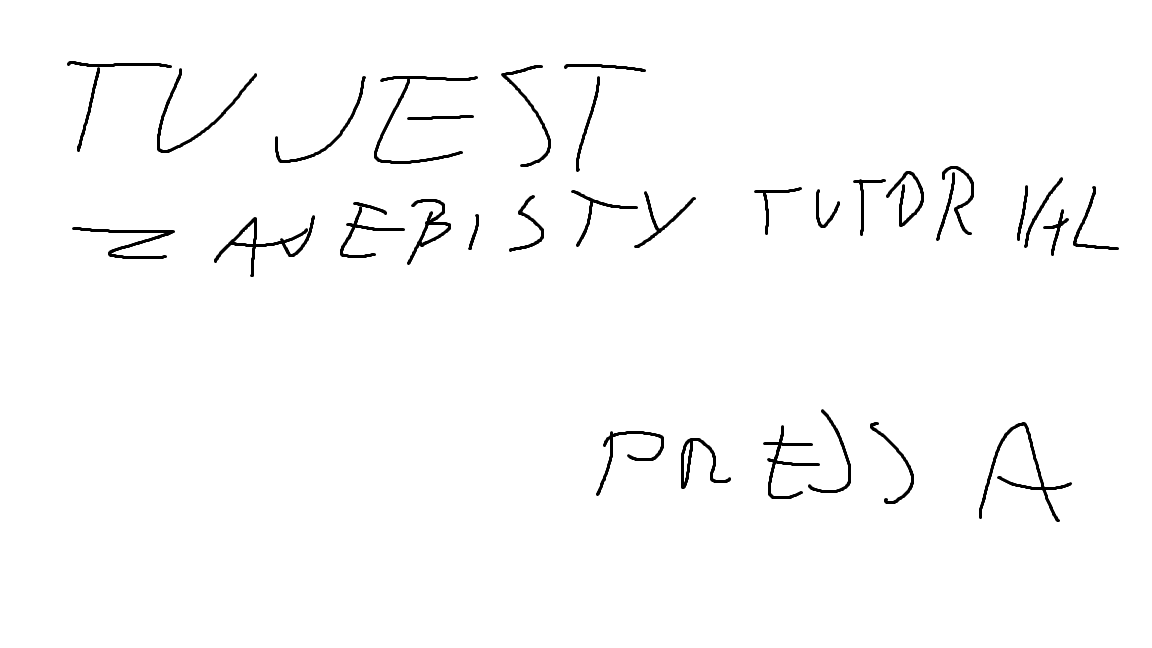 TU JEST
ZAJEBISTY TUTORIAL
PRESS A